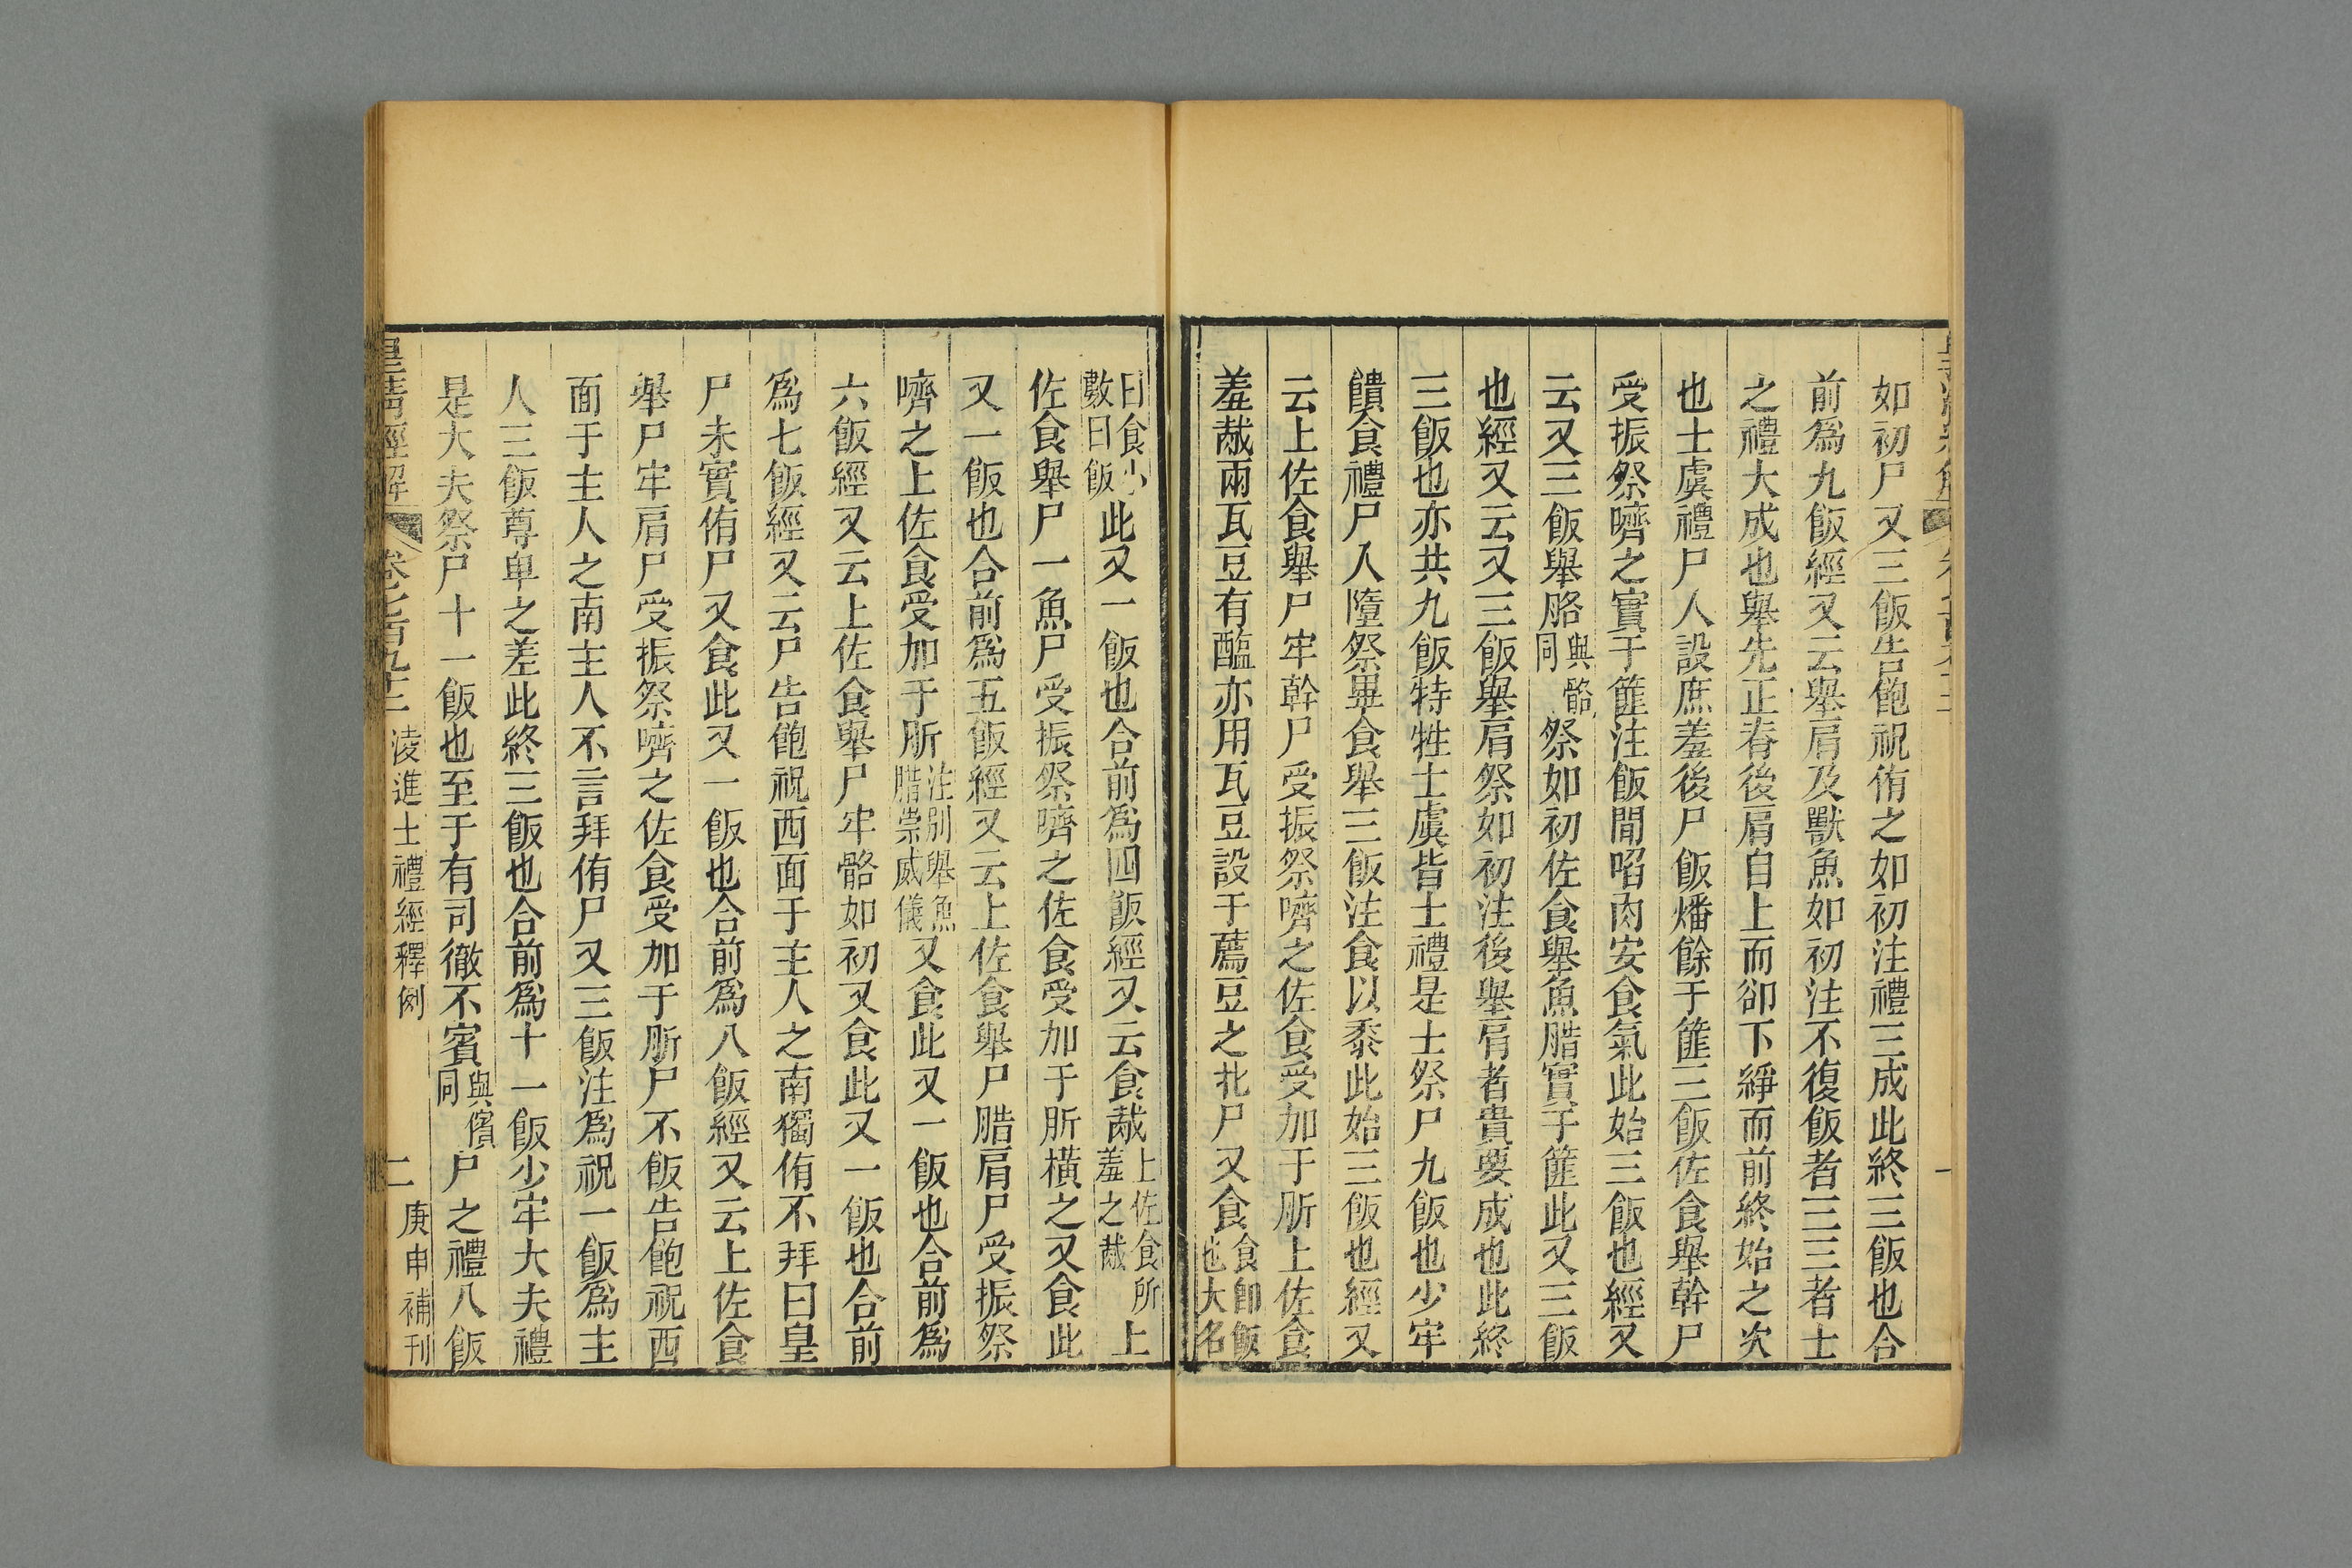 如初尸又三飯告飽祝侑之如初注禮三成此終三飯也合
前爲九飯經又云舉肩及獸魚如初注不復飯者三三者士
之禮大成也舉先正脊後肩自上而卻下綪而前終始之次
也士虞禮尸人設庶羞後尸飯燔餘于篚三飯佐食舉幹尸
受振祭嚌之實于篚注飯閒啗肉安食氣此始三飯也經又
云又三飯舉胳與骼同祭如初佐食舉魚腊實于篚此又三飯
也經又云又三飯舉肩祭如初注後舉肩者貴要成也此終
三飯也亦共九飯特牲士虞皆士禮是士祭尸九飯也少牢
饋食禮尸人隋祭畢食舉三飯注食以黍此始三飯也經又
云上佐食舉尸牢幹尸受振祭嚌之佐食受加于肵上佐食
羞胾兩瓦豆有醢亦用瓦豆設于薦豆之北尸又食食卽飯也大名
曰食小數曰飯此又一飯也合前爲四飯經又云食胾上佐食所上羞之胾
佐食舉尸一魚尸受振祭嚌之佐食受加于肵橫之又食此
又一飯也合前爲五飯經又云上佐食舉尸腊肩尸受振祭
嚌之上佐食受加于肵注別舉魚腊崇威儀又食此又一飯也合前爲
六飯經又云上佐食舉尸牢骼如初又食此又一飯也合前
爲七飯經又云尸告飽祝西面于主人之南獨侑不拜曰皇
尸未實侑尸又食此又一飯也合前爲八飯經又云上佐食
舉尸牢肩尸受振祭嚌之佐食受加于肵尸不飯告飽祝西
面于主人之南主人不言拜侑尸又三飯注爲祝一飯爲主
人三飯尊卑之差此終三飯也合前爲十一飯少牢大夫禮
是大夫祭尸十一飯也至于有司徹不賓與儐同尸之禮八飯
皇清經解 卷七百九十三 淩進士禮經釋例 二 庚申補刊